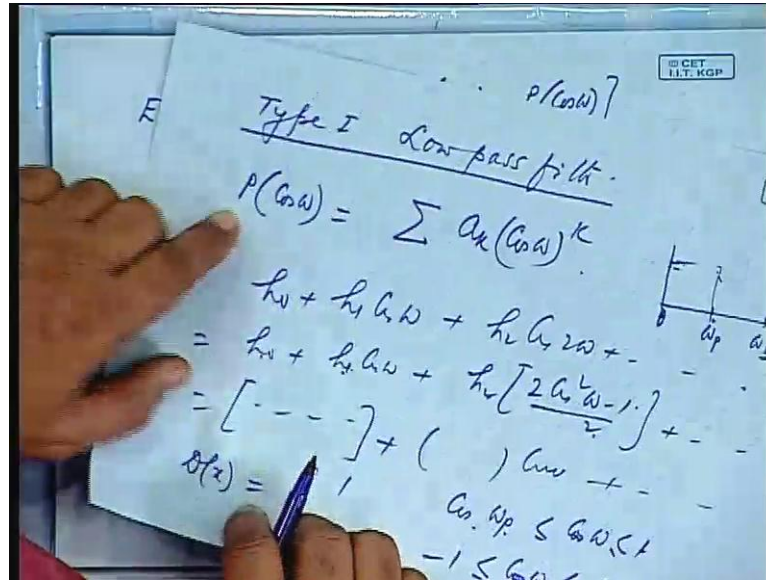 © CET
I.I.T. KGP
P(Cosω)]
E
Type I Low pass filt.
P(Cosω) = Σ aₖ(Cosω)ᴷ
0 ωp ωs
h₀ + h₁ Cosω + h₂ Cos 2ω + - - .
= h₀ + h₁ Cosω + h₂ [2Cos²ω-1/2] + - -
= [- - - -] + ( ) Cosω + - -
D(x) = 1 Cos ωp ≤ Cosω ≤ 1
-1 ≤ Cosω ≤